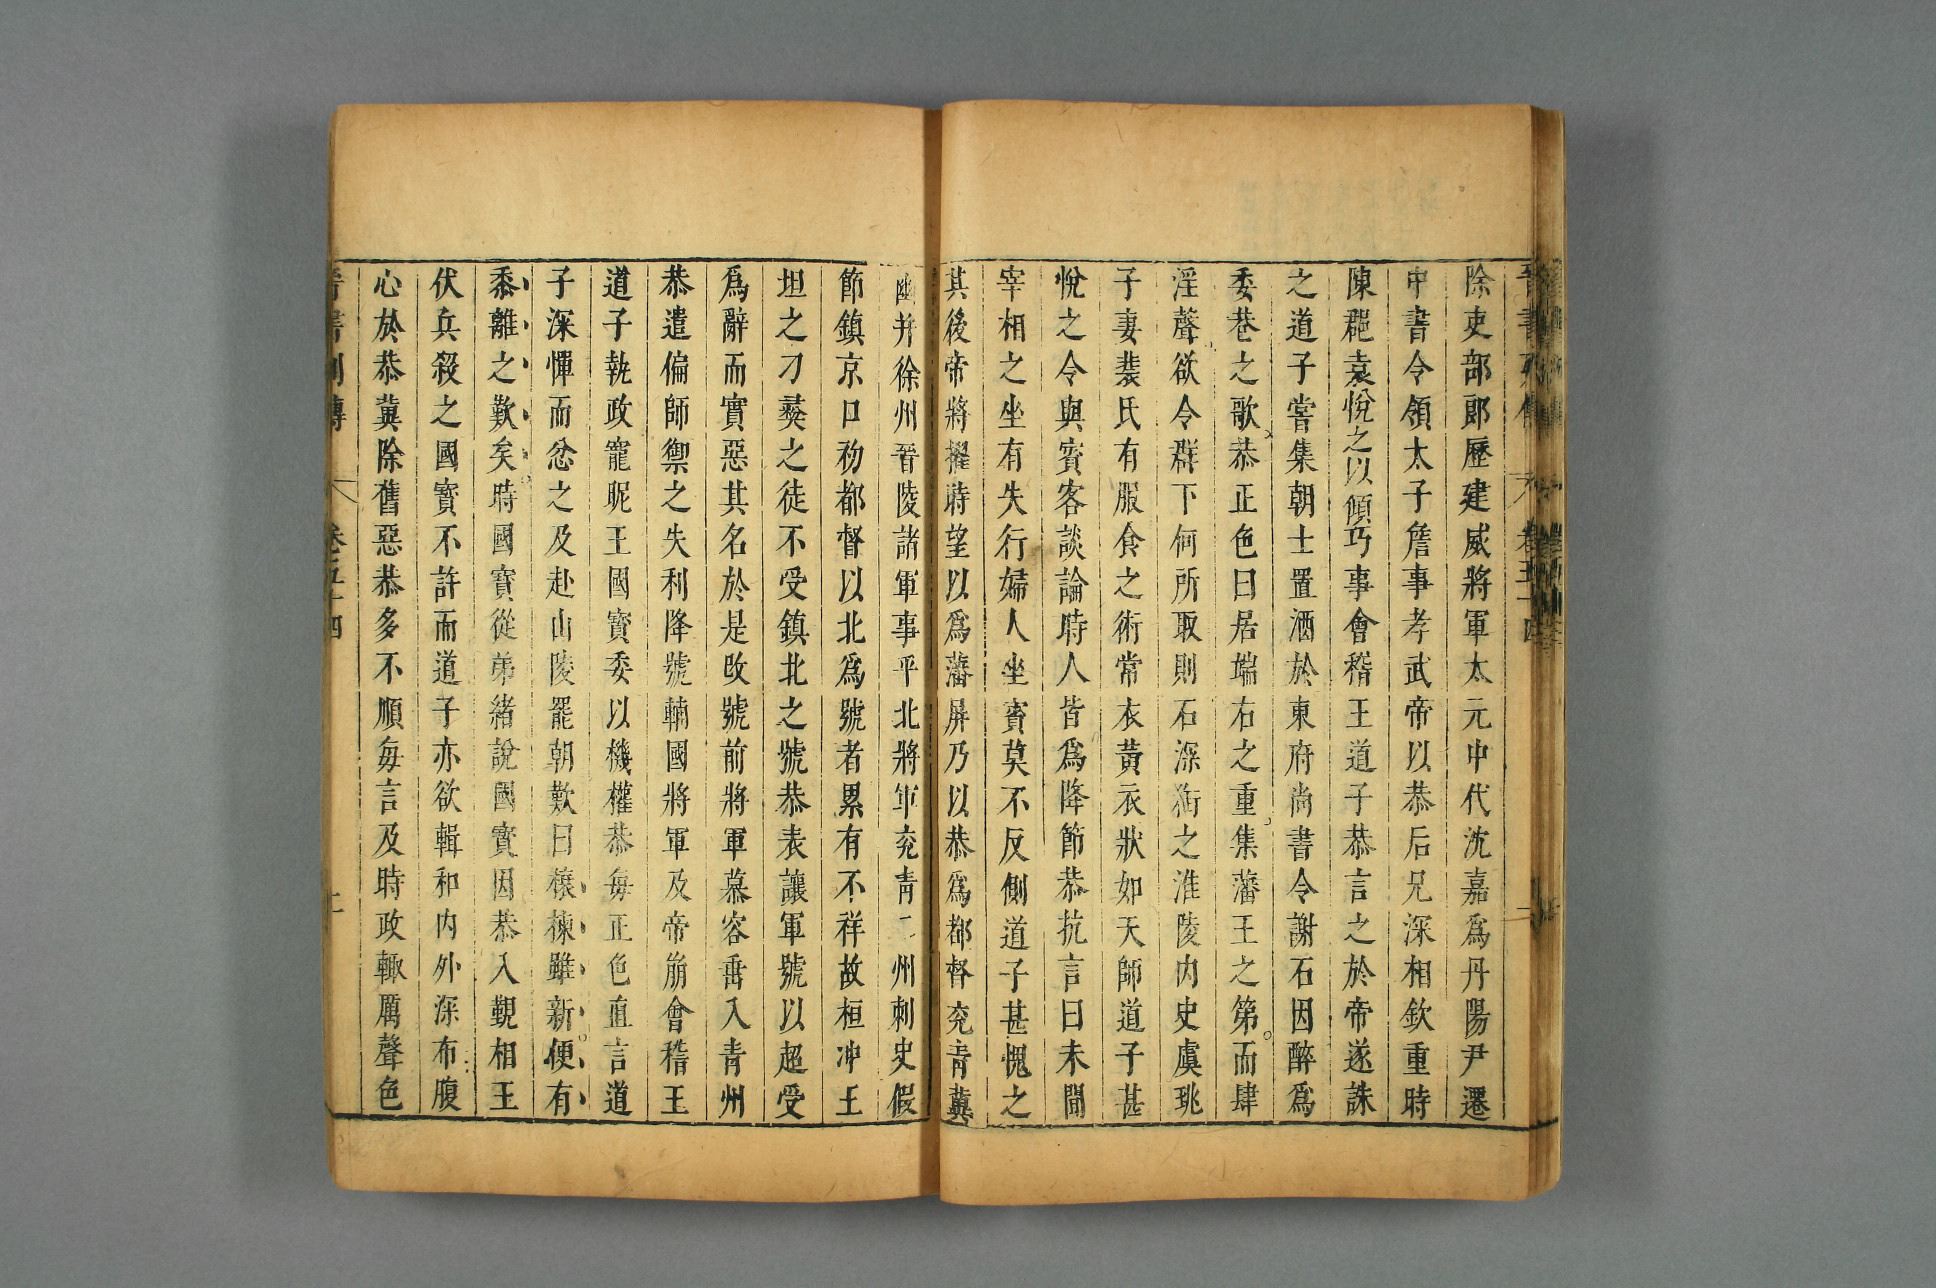 除吏部郎歷建威將軍太元中代沈嘉為丹陽尹遷
中書令領太子詹事孝武帝以恭后兄深相欽重時
陳郡袁悅之以傾巧事會稽王道子恭言之於帝遂誅
之道子嘗集朝士置酒於東府尚書令謝石因醉為
委巷之歌恭正色曰居端右之重集藩王之第而肆
淫聲欲令群下何所取則石深銜之淮陵內史虞珧
子妻裴氏有服食之術常衣黃衣狀如天師道子甚
悅之令與賓客談論時人皆為降節恭抗言曰未聞
宰相之坐有失行婦人坐賓莫不反側道子甚愧之
其後帝將擢時望以為藩屏乃以恭為都督兗青冀
幽并徐州晉陵諸軍事平北將軍兗青二州刺史假
節鎮京口初都督以北為號者累有不祥故桓沖王
坦之刁彝之徒不受鎮北之號恭表讓軍號以超受
為辭而實惡其名於是改號前將軍慕容垂入青州
恭遣偏師禦之失利降號輔國將軍及帝崩會稽王
道子執政寵昵王國寶委以機權恭每正色直言道
子深憚而忿之及赴山陵罷朝歎曰榱棟雖新便有
黍離之歎矣時國寶從弟緒說國寶因恭入覲相王
伏兵殺之國寶不許而道子亦欲輯和內外深布腹
心於恭冀除舊惡恭多不順每言及時政輒厲聲色
晉書列傳 卷五十四 二